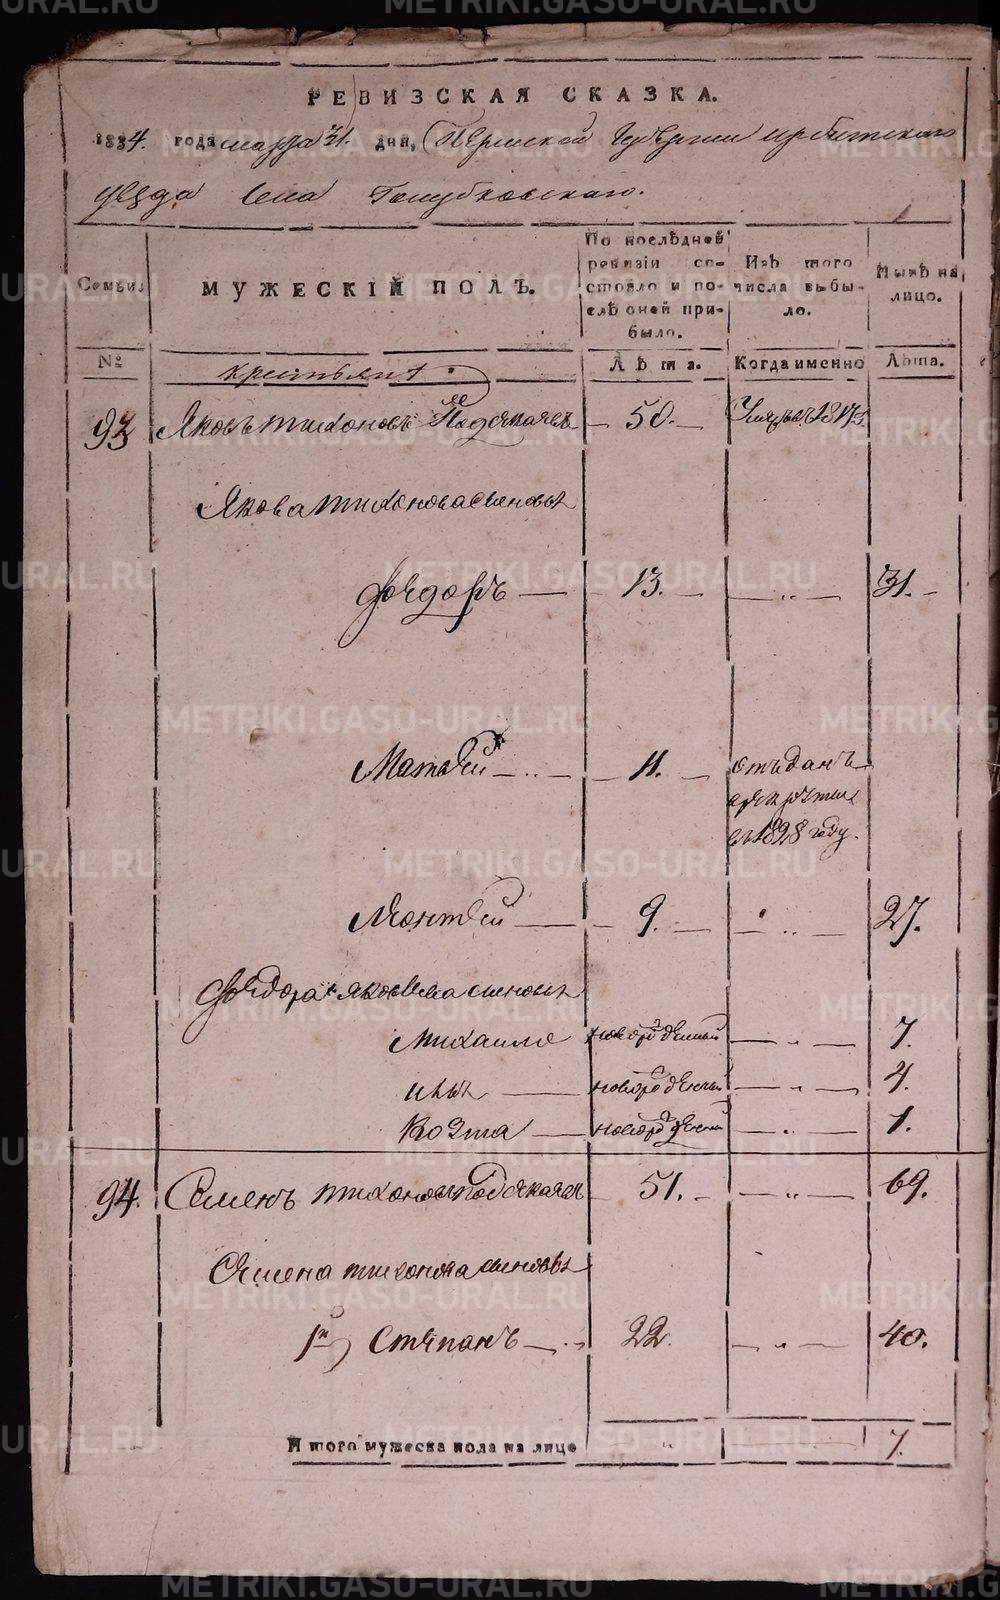 РЕВИЗСКАЯ СКАЗКА.
1834. года марта 31. дня, Пермской Губернии ирбитскаго
уезда Села Голубковскаго.
Семьи
№
МУЖЕСКІЙ ПОЛЪ.
По послѣдней ревизіи состояло и послѣ оной прибыло.
Изъ того числа выбыло.
Нынѣ на лицо.
Лѣта.
Когда именно
Лѣта.
крестьянъ
93 Яковъ тихоновъ 50. Умре въ
Якова тихонова сыновья
Фѣдоръ 13. 31.
Матвѣй 11. отъданъ
в рекруты
въ 1828 году.
9. 27.
Фѣдора яковлева сыновья
михаило новорожденный 7.
илья новорожденный 4.
Козма новорожденный 1.
94. Семенъ тихоновъ 51. 69.
Семена тихонова сыновья
1й Степанъ 22. 40.
Итого мужеска пола на лице 7.
METRIKI.GASO-URAL.RU